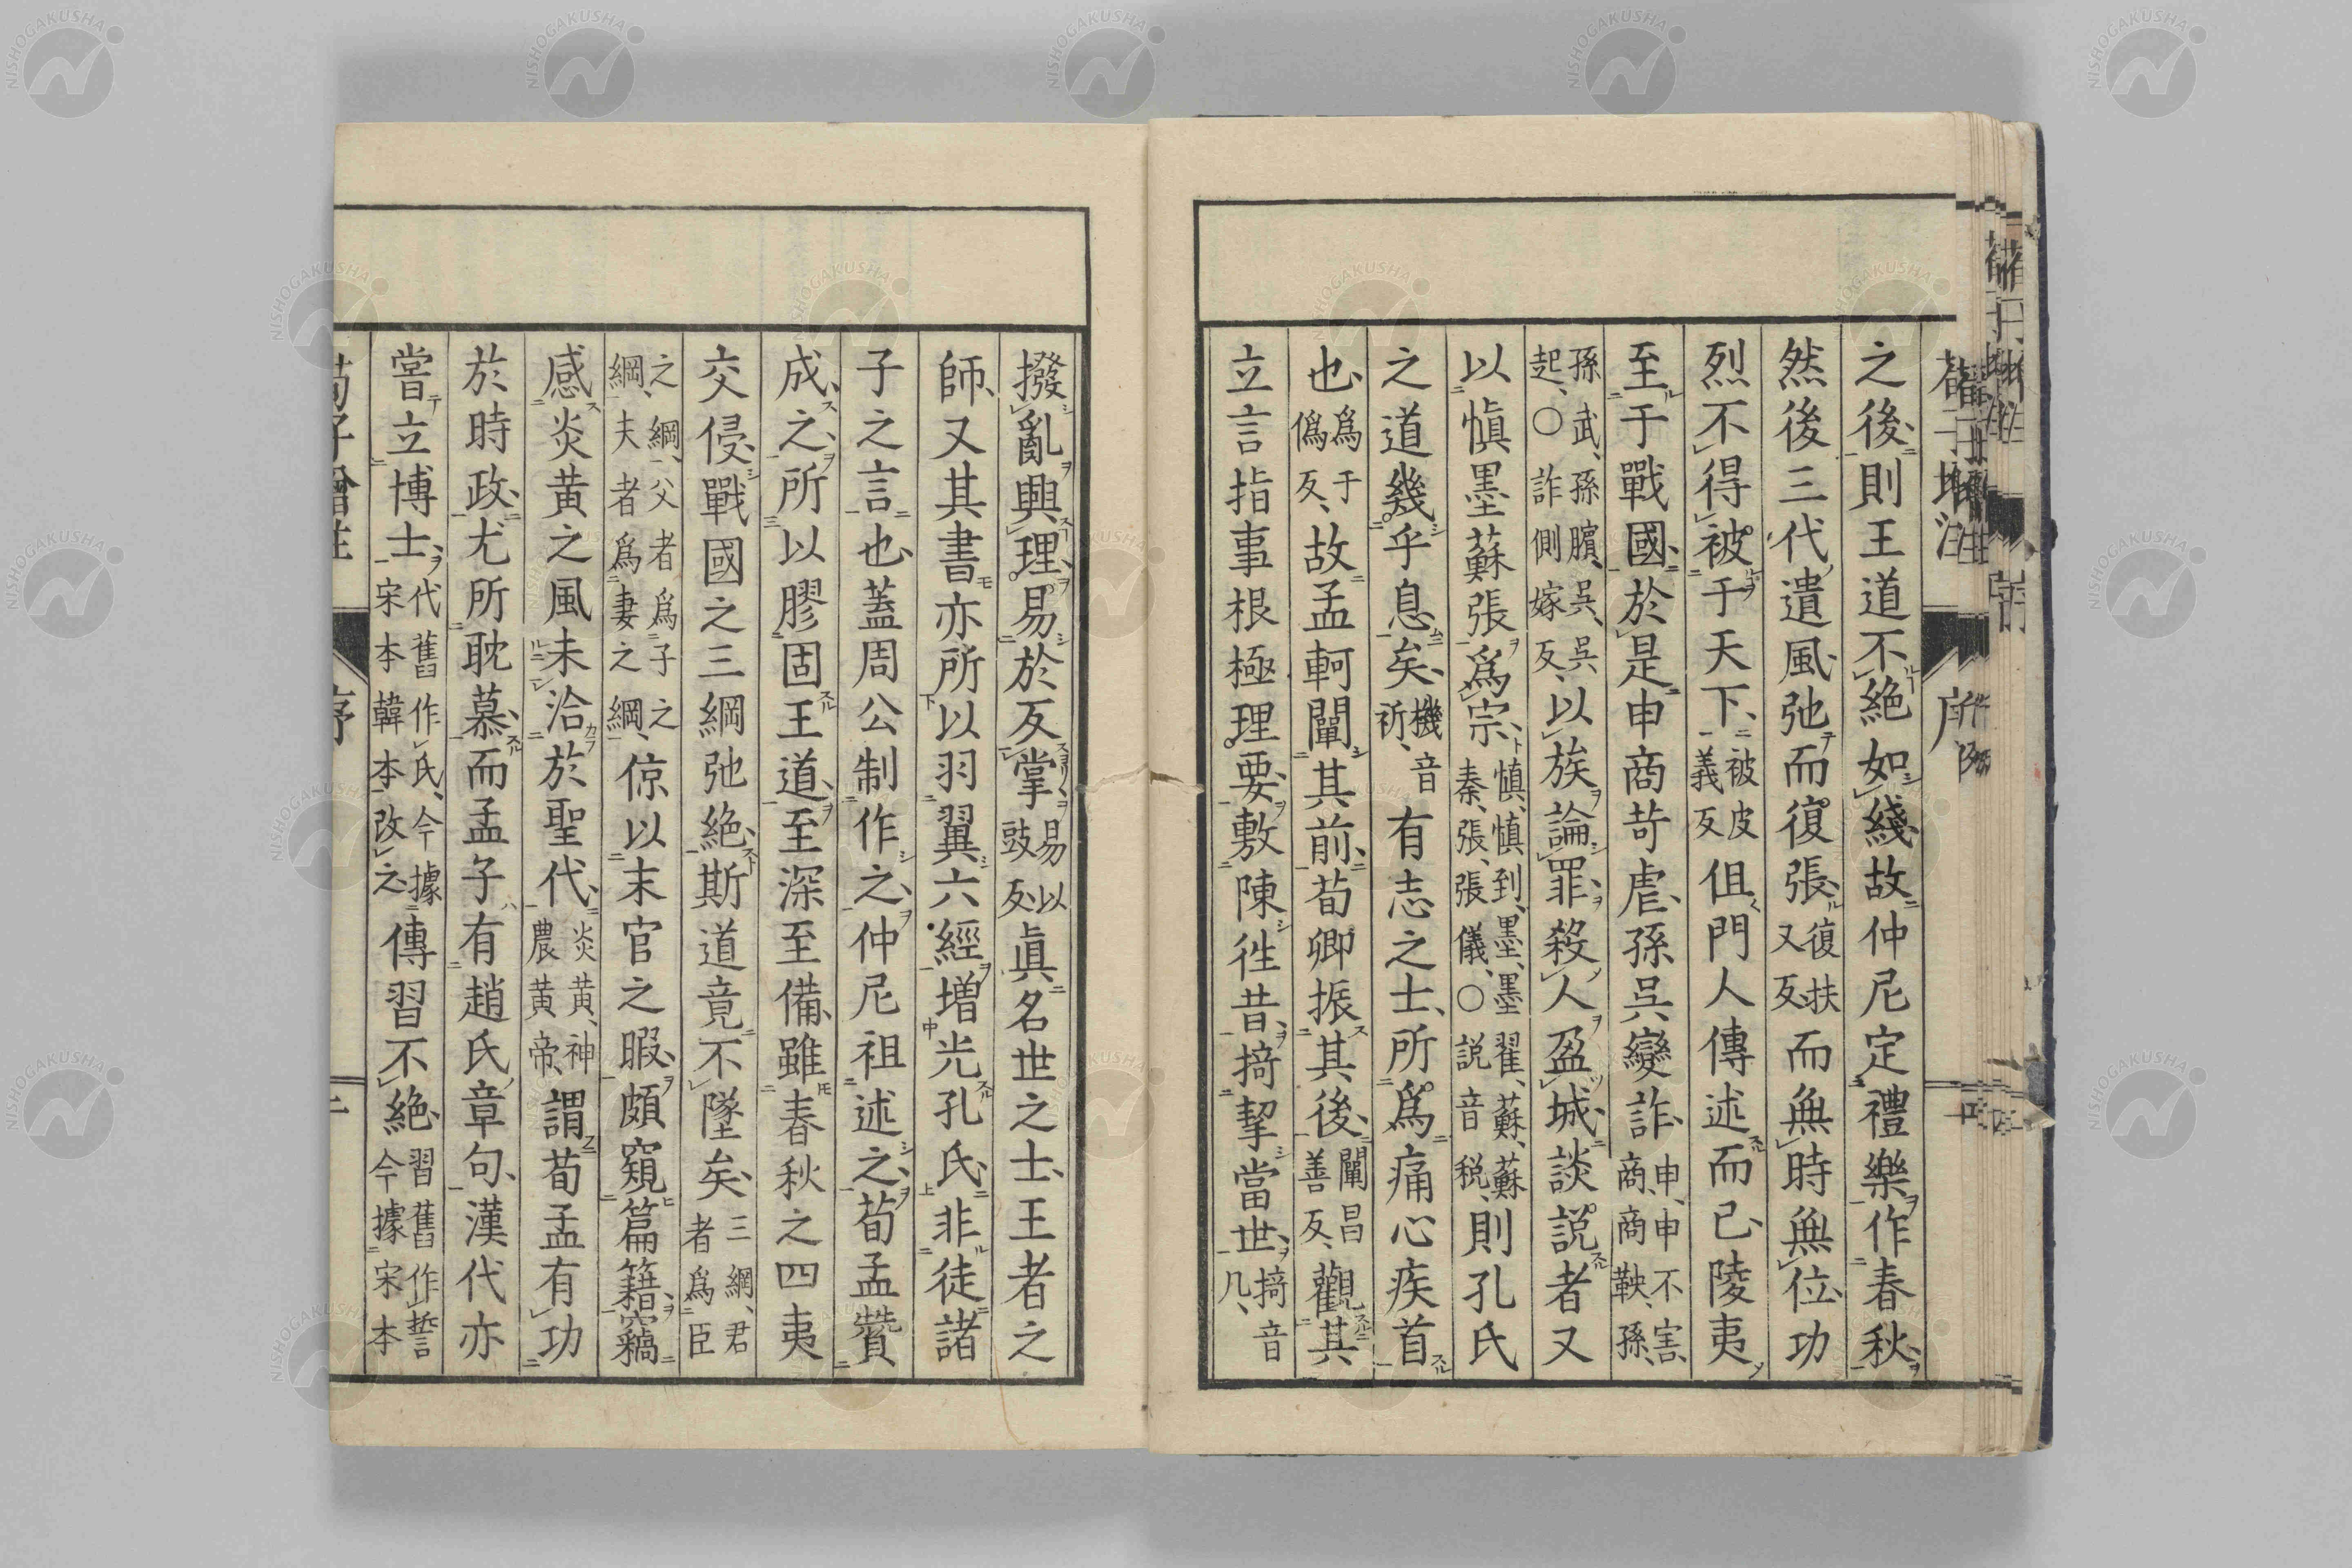 之後則王道不絕如綫故仲尼定禮樂作春秋
然後三代遺風弛而復張復扶又反而無時無位功
烈不得被于天下被皮義反但門人傳述而已陵夷
至于戰國於是申商苛虐孫吳變詐申申不害商商鞅孫
孫武孫臏吳吳起○詐側嫁反以族論罪殺人盈城談説者又
以愼墨蘇張爲宗愼愼到墨墨翟蘇蘇秦張張儀○説音税則孔氏
之道幾乎息矣機音祈有志之士所爲痛心疾首
也爲于僞反故孟軻闡其前荀卿振其後闡昌善反觀其
立言指事根極理要敷陳徃昔掎挈當世掎音几
撥亂興理易於反掌易以豉反眞名世之士王者之
師又其書亦所以羽翼六經増光孔氏非徒諸
子之言也蓋周公制作之仲尼祖述之荀孟贊
成之所以膠固王道至深至備雖春秋之四夷
交侵戰國之三綱弛絕斯道竟不墜矣三綱君者爲臣
之綱父者爲子之綱夫者爲妻之綱倞以末官之暇頗窺篇籍竊
感炎黄之風未洽於聖代炎黄神農黄帝謂荀孟有功
於時政尤所耽慕而孟子有趙氏章句漢代亦
嘗立博士代舊作氏今據宋本韓本改之傳習不絕習舊作誓今據宋本
荀子增注 序 二
NISHOGAKUSHA